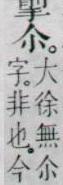 尒。
大徐無尒
字。非也。今